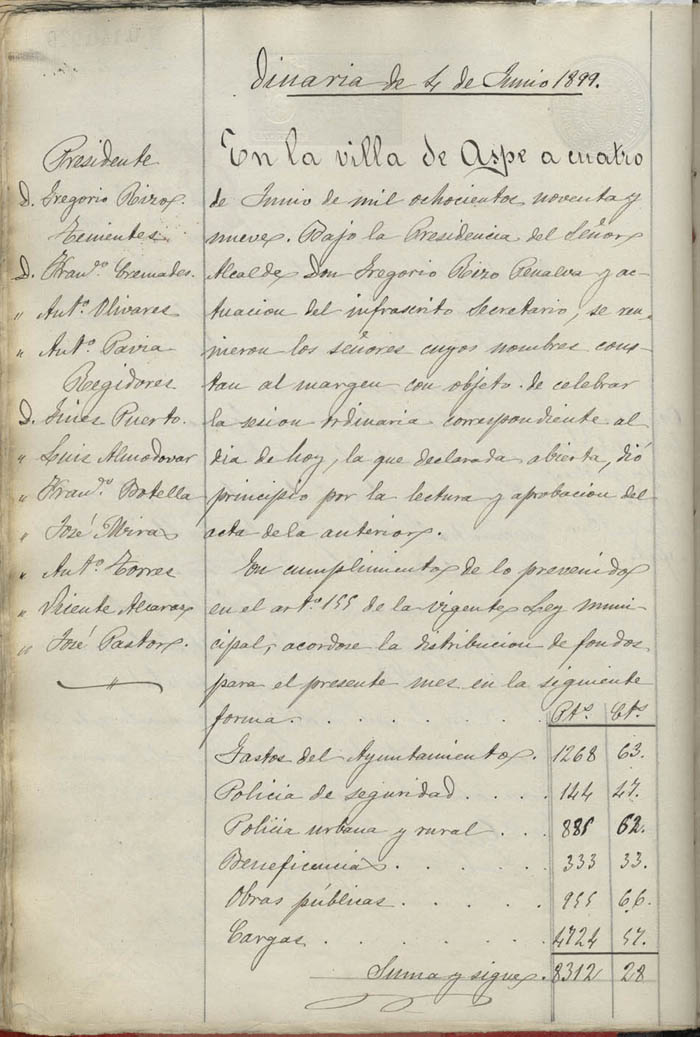 Dinaria de 4 de Junio 1899.
Presidente
D. Gregorio Rizo.
Tenientes
D. Fran.co Cremades.
" Ant.o Olivares
" Ant.o Pavia
Regidores
D. Gines Puerto.
" Luis Almodovar
" Fran.co Botella
" José Mira
" Ant.o Torres
" Vicente Alcaraz
" José Pastor.
"
En la villa de Aspe a cuatro
de Junio de mil ochocientos noventa y
nueve. Bajo la Presidencia del Señor
Alcalde Don Gregorio Rizo Penalva y ac-
tuacion del infrascrito Secretario, se reu-
nieron los señores cuyos nombres cons-
tan al margen con objeto de celebrar
la sesion ordinaria correspondiente al
dia de hoy, la que declarada abierta, dió
principio por la lectura y aprobacion del
acta de la anterior.
En cumplimiento de lo prevenido
en el art.o 155 de la vigente Ley muni-
cipal, acordose la distribucion de fondos
para el presente mes en la siguiente
forma. . . . . . . Pts. Cts.
Gastos del Ayuntamiento. 1268 63.
Policia de seguridad . . . . 144 47.
Policia urbana y rural . . . 885 62.
Beneficencia . . . . . . 333 33.
Obras públicas . . . . . 955 66.
Cargas . . . . . . . 4724 57.
Suma y sigue. 8312 28